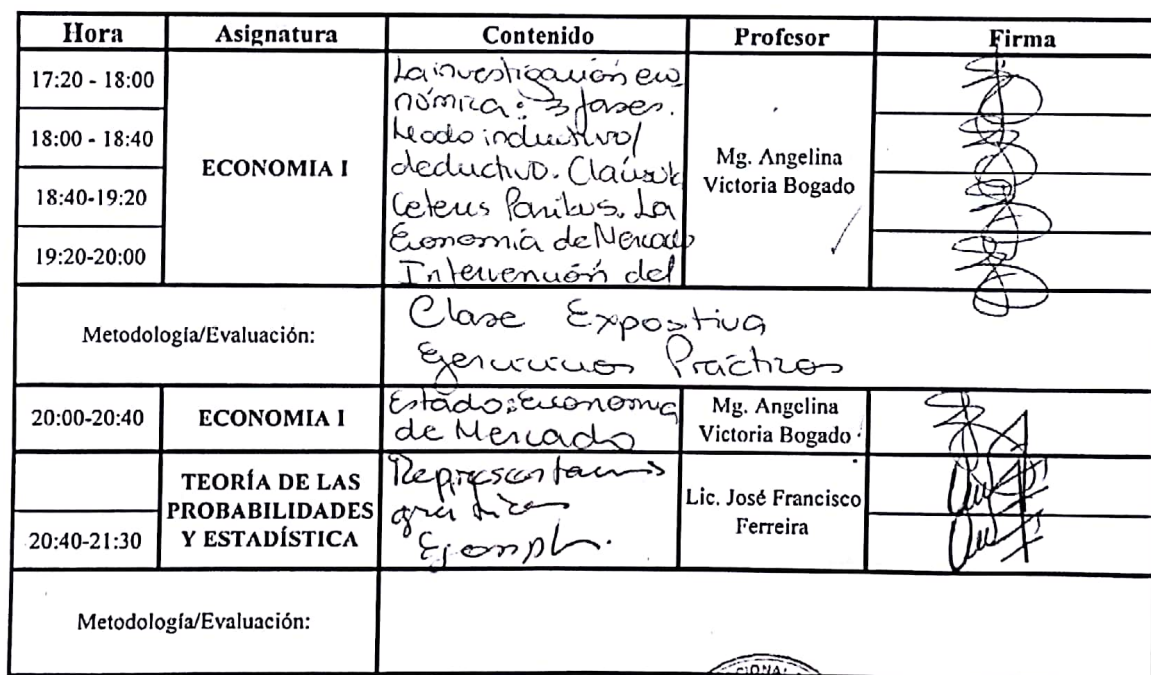 Hora Asignatura Contenido Profesor Firma
17:20 - 18:00
18:00 - 18:40
18:40-19:20
19:20-20:00
ECONOMIA I
La investigación eco
nómica: 3 fases.
Modo inductivo/
deductivo. Claúsula
Ceterus Paribus. La
Economía de Mercado
Intervención del
Mg. Angelina
Victoria Bogado
Metodología/Evaluación:
Clase Expositiva
Ejercicios Prácticos
20:00-20:40
ECONOMIA I
Estado: Economia
de Mercado
Mg. Angelina
Victoria Bogado
20:40-21:30
TEORÍA DE LAS
PROBABILIDADES
Y ESTADÍSTICA
Representacions
gráficas
Ejemplo.
Lic. José Francisco
Ferreira
Metodología/Evaluación:
CIONAL